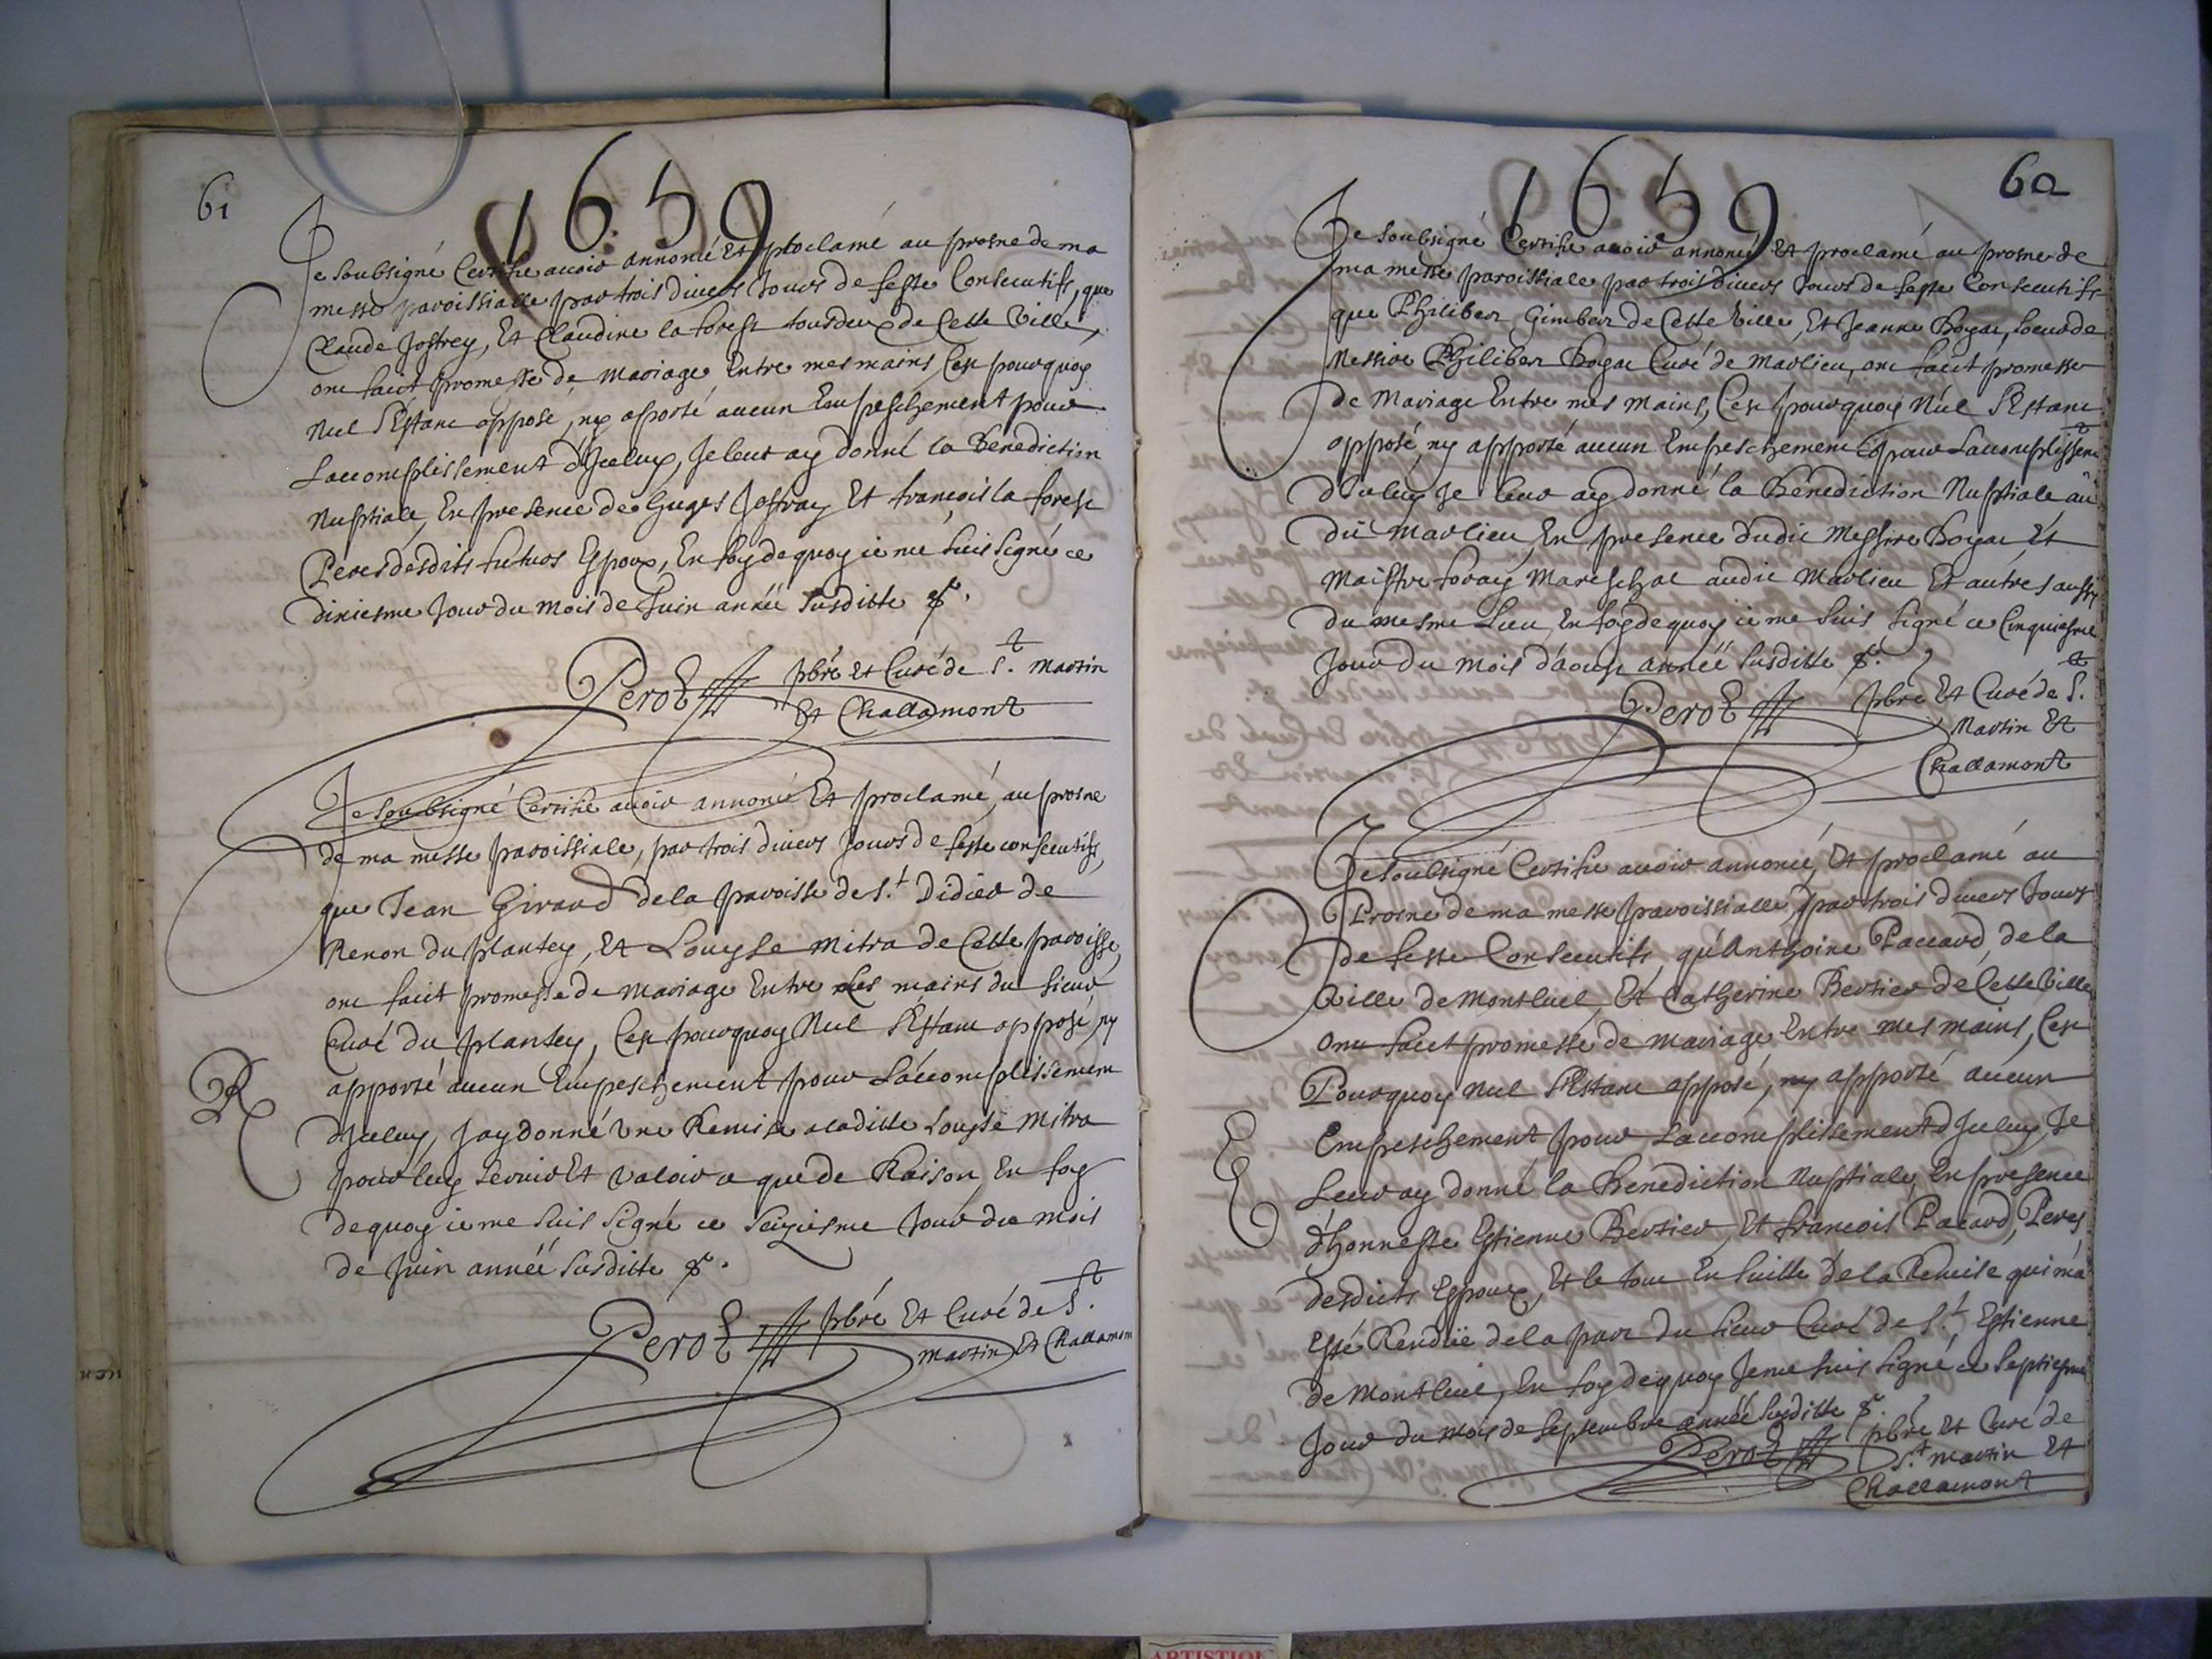 61
1659
Je soubsigné Certifie avoir annoncé Et proclamé au prosne de ma
messe paroissialle par trois divers Jours de feste Consecutifs, que
Claude Joffrey, Et Claudine la forest tous deux de Cette Ville,
ont faict promesse de Mariage Entre mes mains Cest pourquoy
Nul S'Estant opposé, ny aporté aucun Empeschement pour
Laccomplissement d'Jceluy, Je leur ay donné la Benediction
Nuptiale, En presence de Huges Joffray Et francois la forest
Peres desdits futurs Espoux, En foy de quoy ie me suis signé ce
dixiesme Jour du Mois de Juin année susditte &.
Perot pbre et Curé de St. Martin
Et Challamont
Je soubsigné Certifie avoir annoncé Et proclamé, au prosne
de ma messe paroissiale, par trois divers Jours de feste consecutifs,
que Jean Giraud de la paroisse de St. Didier de
Renon du plantey, Et Louyse Mitra de Cette paroisse,
ont faict promesse de Mariage Entre les mains du sieur
Curé du plantey, Cest pourquoy Nul S'Estant opposé, ny
apporté aucun Empeschement pour L'accomplissement
R
d'Jceluy, Jay donné Une Remise a laditte Louyse Mitra
pour luy servir Et valoir a que de Raison, En foy
de quoy ie me suis signé ce seiziesme Jour du mois
de Juin année susditte &.
Perot pbre Et Curé de St.
martin Et Challamont
62
1659
Je soubsigné Certifie avoir annoncé Et proclamé au prosne de
ma messe paroissiale par trois divers Jours de feste Consecutifs
que Philibert Gimbert de Cette Ville, Et Jeanne Boyat, soeur de
Messire Philibert Boyat Curé de Marlieu, ont faict promesse
de Mariage Entre mes Mains, Cest pourquoy Nul S'Estant
opposé, ny apporté aucun Empeschement pour Laccomplissemt
d'Iceluy Je leur ay donné la Benediction Nuptiale, au
dit Marlieu, En presence dudit Messire Boyat Et
Maistre foray Mareschal audit Marlieu Et autres aussy
du mesme Lieu, En foy de quoy ie me suis signé ce Cinquiesme
Jour du Mois d'aoust année susditte &.
Perot pbre Et Curé de St.
Martin Et
Challamont
Je soubsigné Certifie avoir annoncé, Et proclamé au
Prosne de ma messe paroissialle, par trois divers Jours
de feste Consecutifs, qu'Anthoine Paccard, de la
Ville de Montluel, Et Catherine Bertier de Cette Ville
Ont faict promesse de mariage Entre mes mains, Cest
Pourquoy Nul S'Estant opposé, ny apporté aucun
Empeschement pour Laccomplissement d'Jceluy, Je
Leur ay donné la Benediction Nuptiale, En presence
d'honneste Estienne Bertier, Et francois Pacard, Peres
desdicts Espoux, Et le tout En suitte de la Remise qui m'a
Esté Rendüe de la part du sieur Curé de St. Estienne
de Montluel, En foy de quoy Je me suis signé ce septiesme
Jour du Mois de Septembre année susditte &.
Perot pbre Et Curé de
St. martin Et
Challamont
ARTISTIQUE